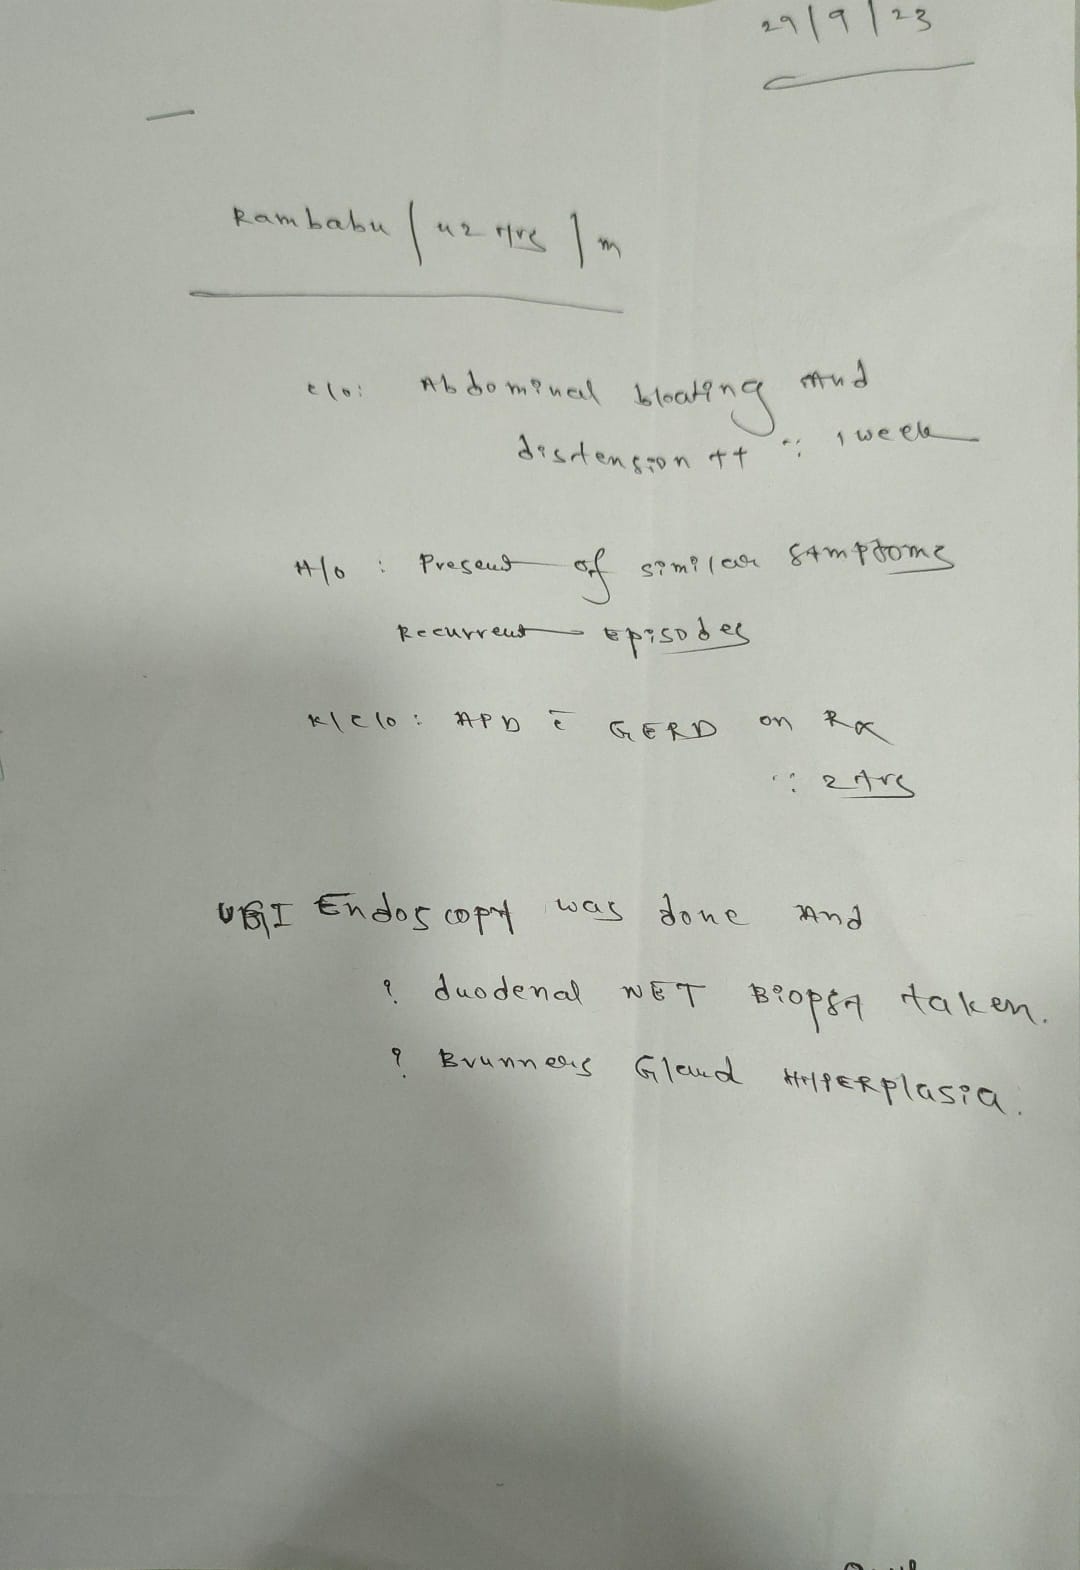 29/9/23
Rambabu / 42 Yrs / m
c/o: Abdominal bloating And
distension ++ ∵ 1 week
H/o : Present of similar symptoms
Recurrent Episodes
K/c/o : APD c̄ GERD on Rx
∵ 2 Yrs
UGI Endoscopy was done And
? duodenal NET Biopsy taken.
? Brunners Gland HYPERplasia.